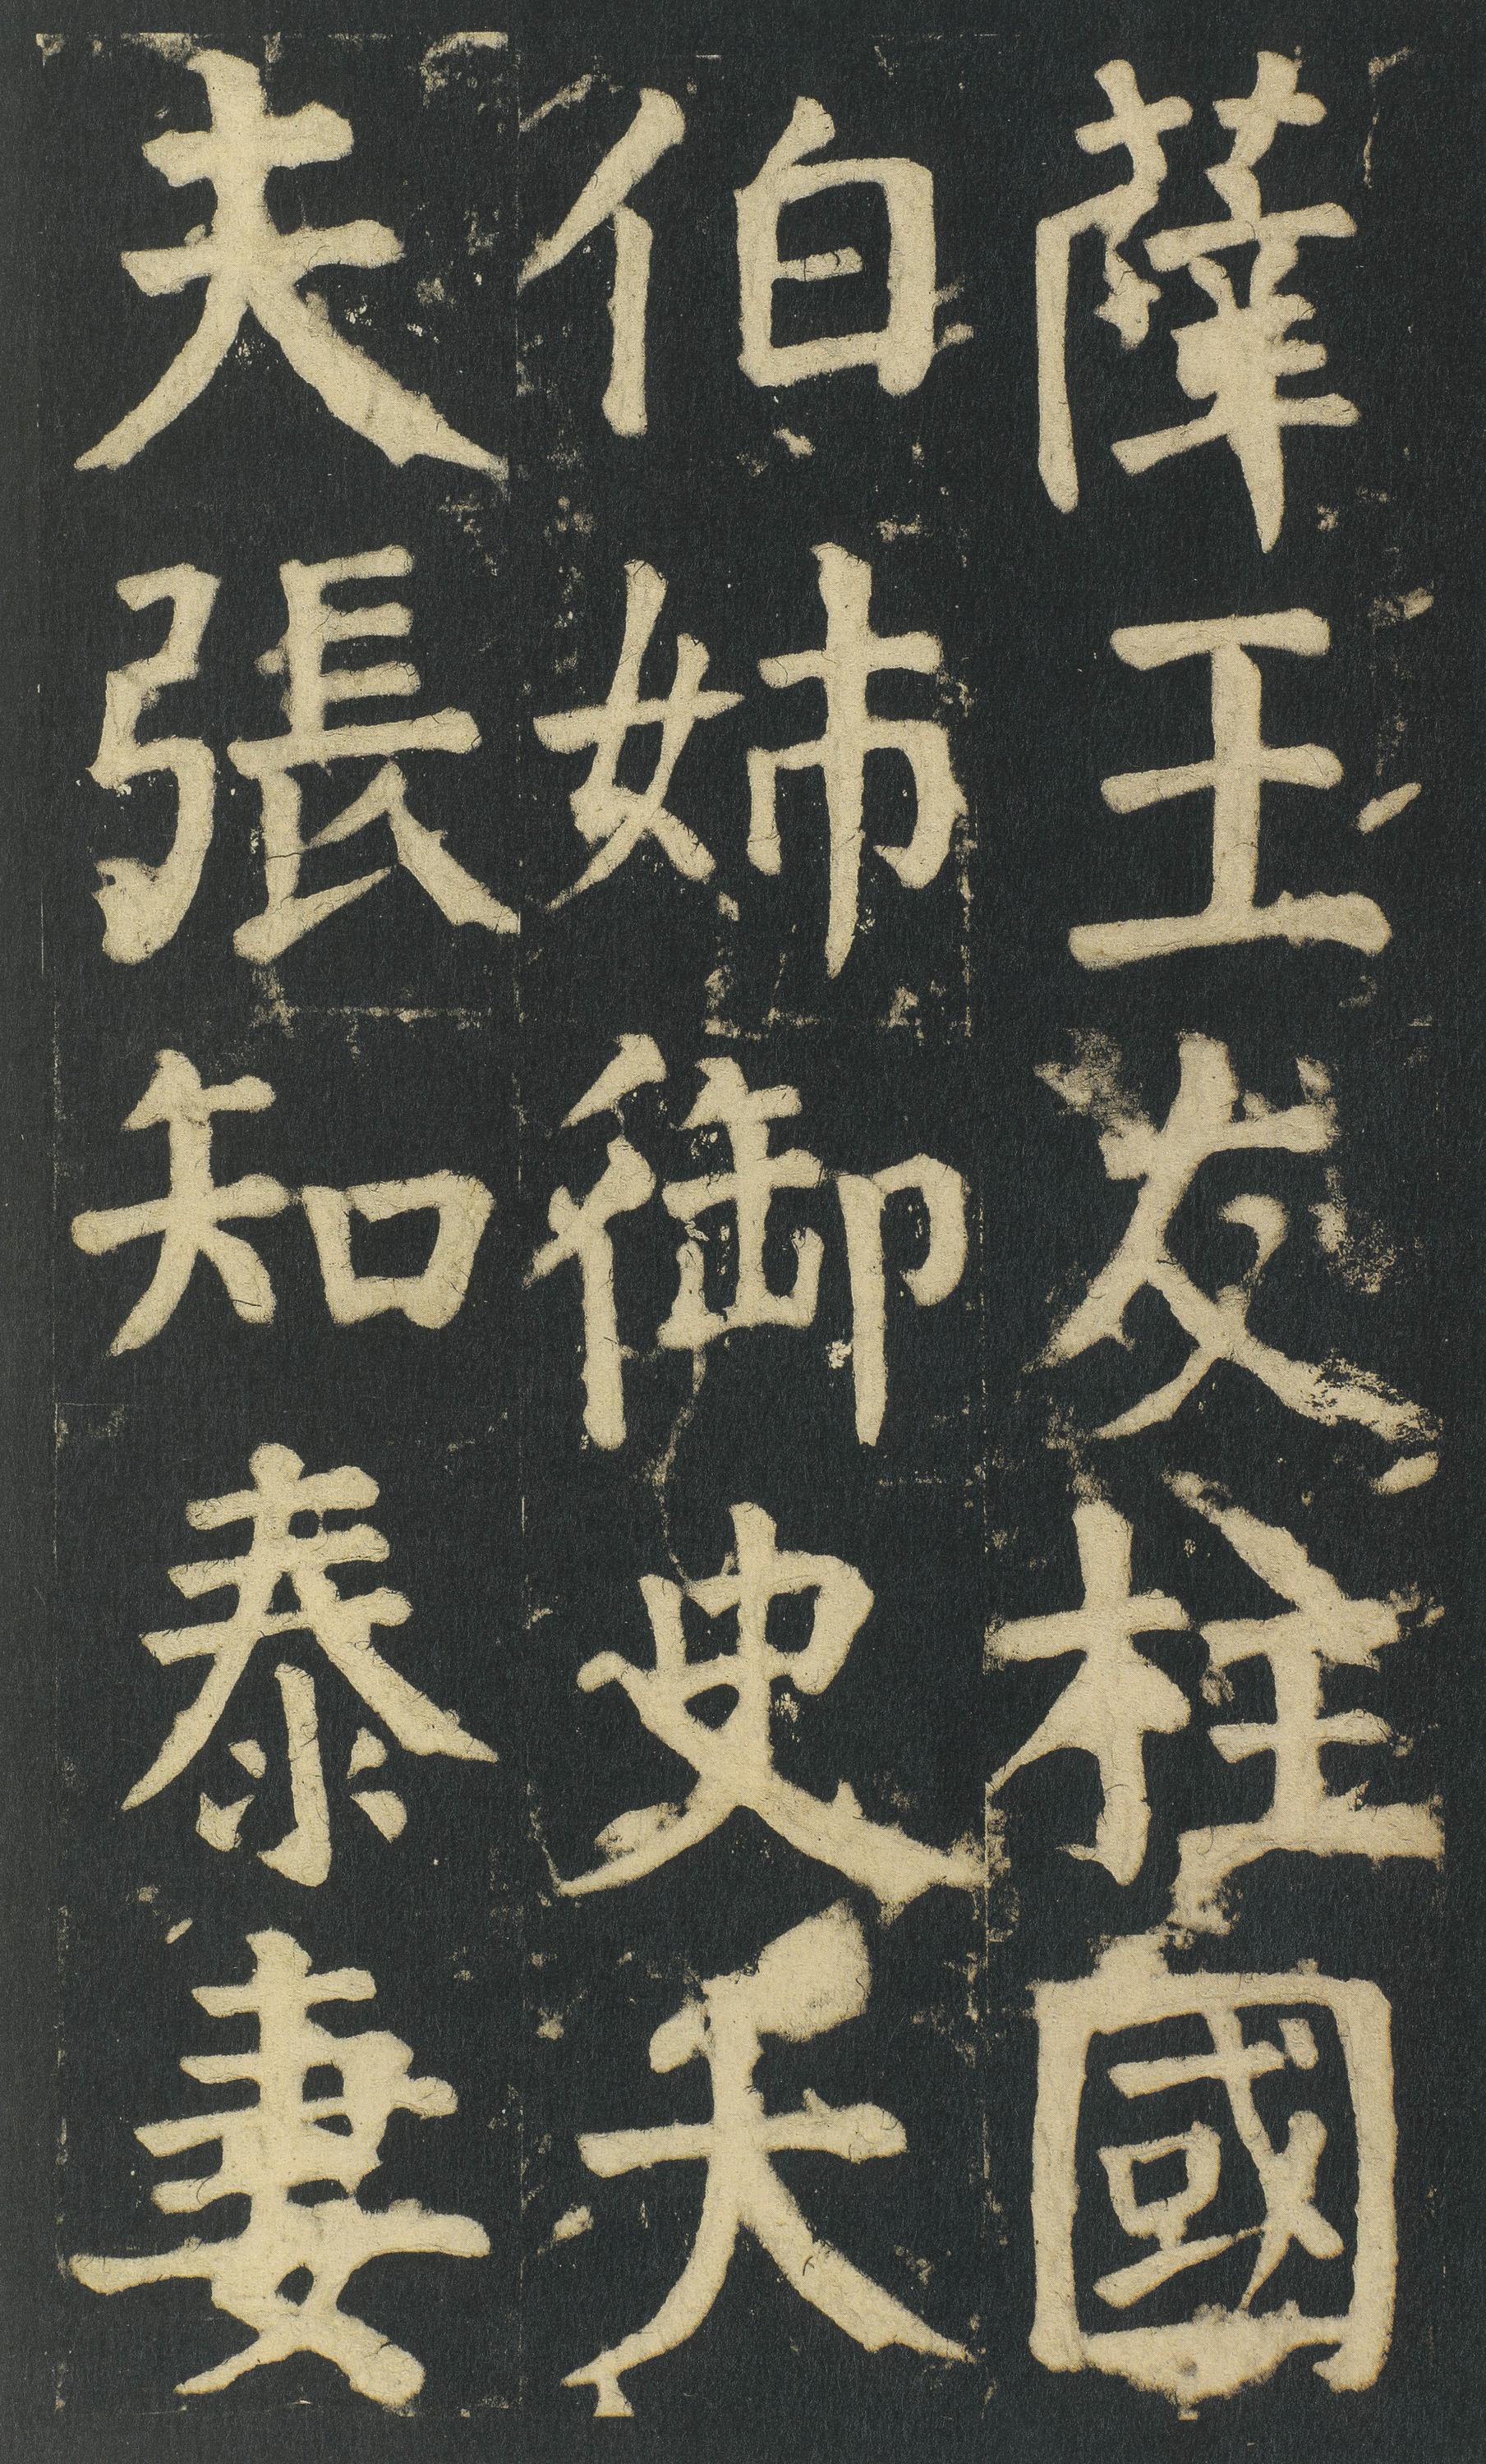 薛王友柱國
伯姊御史大
夫張知泰妻